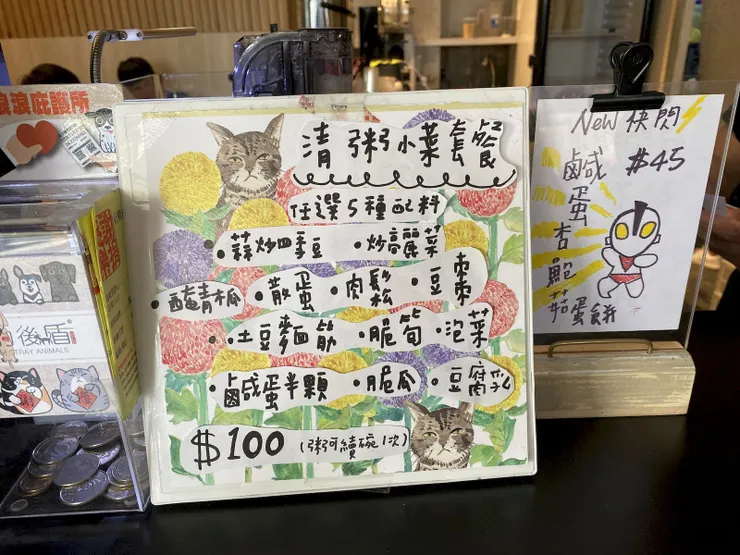 浪浪庇護所
後盾
STRAY ANIMALS
清粥小菜套餐
任選5種配料
•蒜炒四季豆 •炒高麗菜
•醃青木瓜 •散蛋 •肉鬆 •豆棗
•土豆麵筋 •脆筍 •泡菜
•鹹蛋半顆 •脆瓜 •豆腐乳
$100 (粥可續碗1次)
New 快閃
鹹蛋杏鮑菇蛋餅
$45